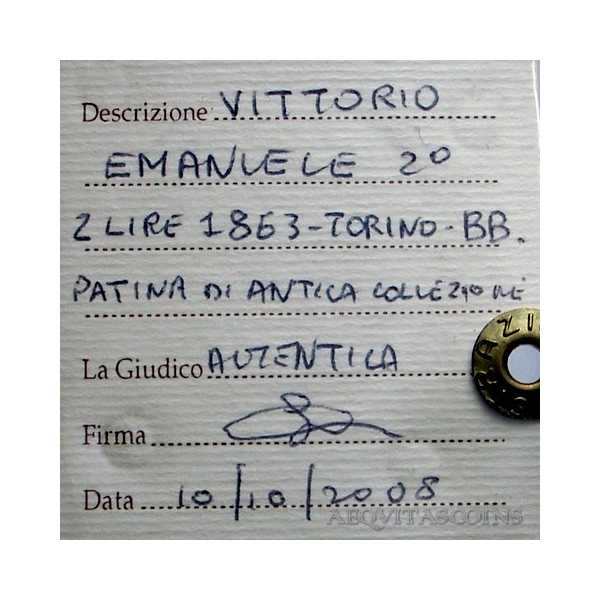 Descrizione VITTORIO
EMANUELE 2º
2 LIRE 1863-TORINO-BB.
PATINA DI ANTICA COLLEZIONE
La Giudico AUTENTICA
Firma
Data 10/10/2008
AEQVITASCOINS